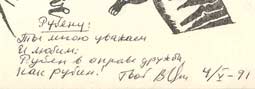 Рубену:
Ты мною уважаем
И любим:
Рубен в оправе дружбы
как рубин!
Твой 4/V-91